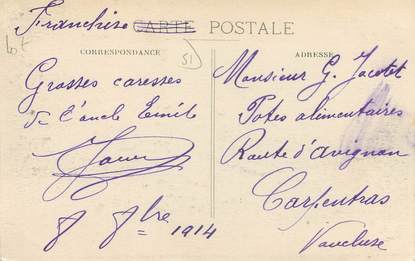 Franchise CARTE POSTALE
CORRESPONDANCE
Grosses caresses
de l'oncle Emile
8 8bre 1914
ADRESSE
Monsieur G. Jacotet
Pates alimentaires
Route d'Avignon
Carpentras
Vaucluse
51